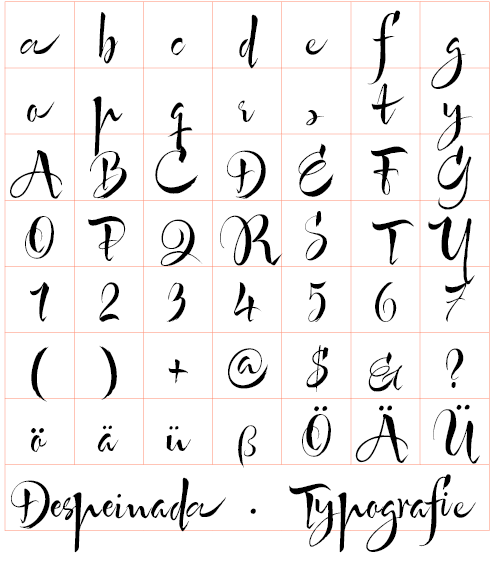 a b c d e f g
o p q r s t y
A B C D E F G
O P Q R S T Y
1 2 3 4 5 6 7
( ) + @ $ & ?
ö ä ü ß Ö Ä Ü
Despeinada · Typografie